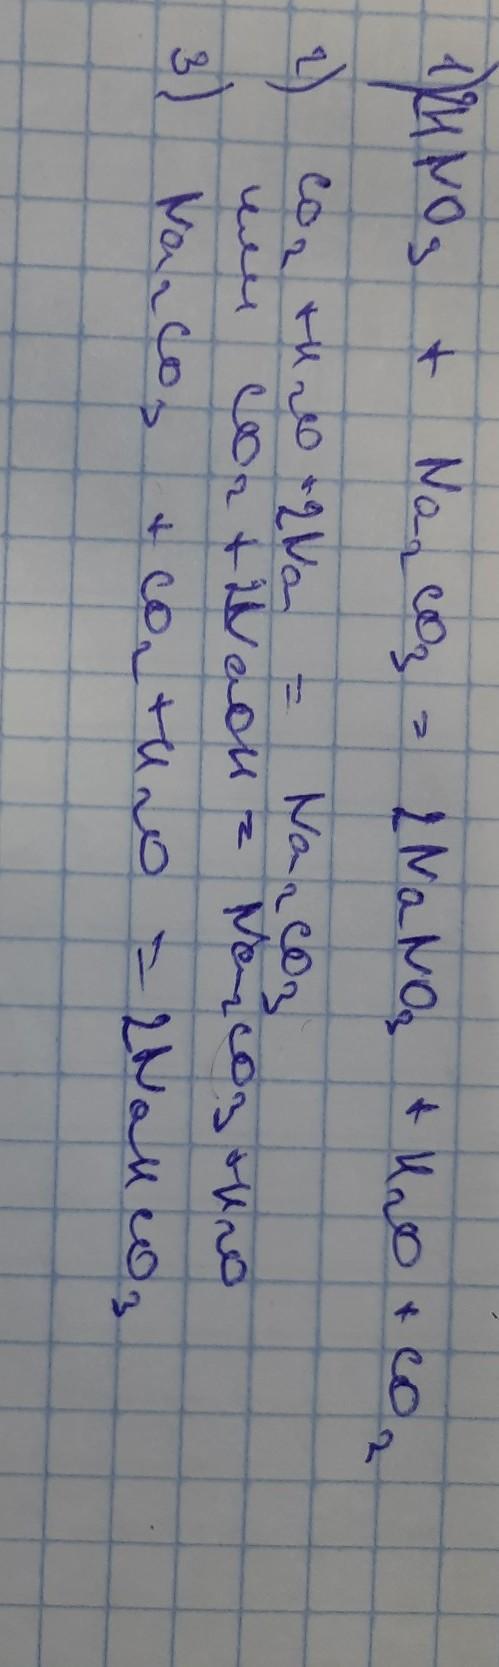 1) 2HNO3 + Na2CO3 = 2NaNO3 + H2O + CO2
2) CO2 + H2O + 2Na = Na2CO3
или CO2 + 2NaOH = Na2CO3 + H2O
3) Na2CO3 + CO2 + H2O = 2NaHCO3